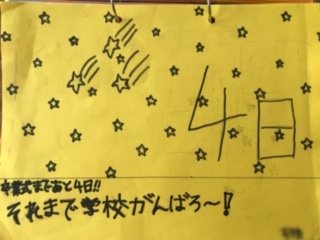 4日
卒業式まであと4日!!
それまで学校がんばろ〜!